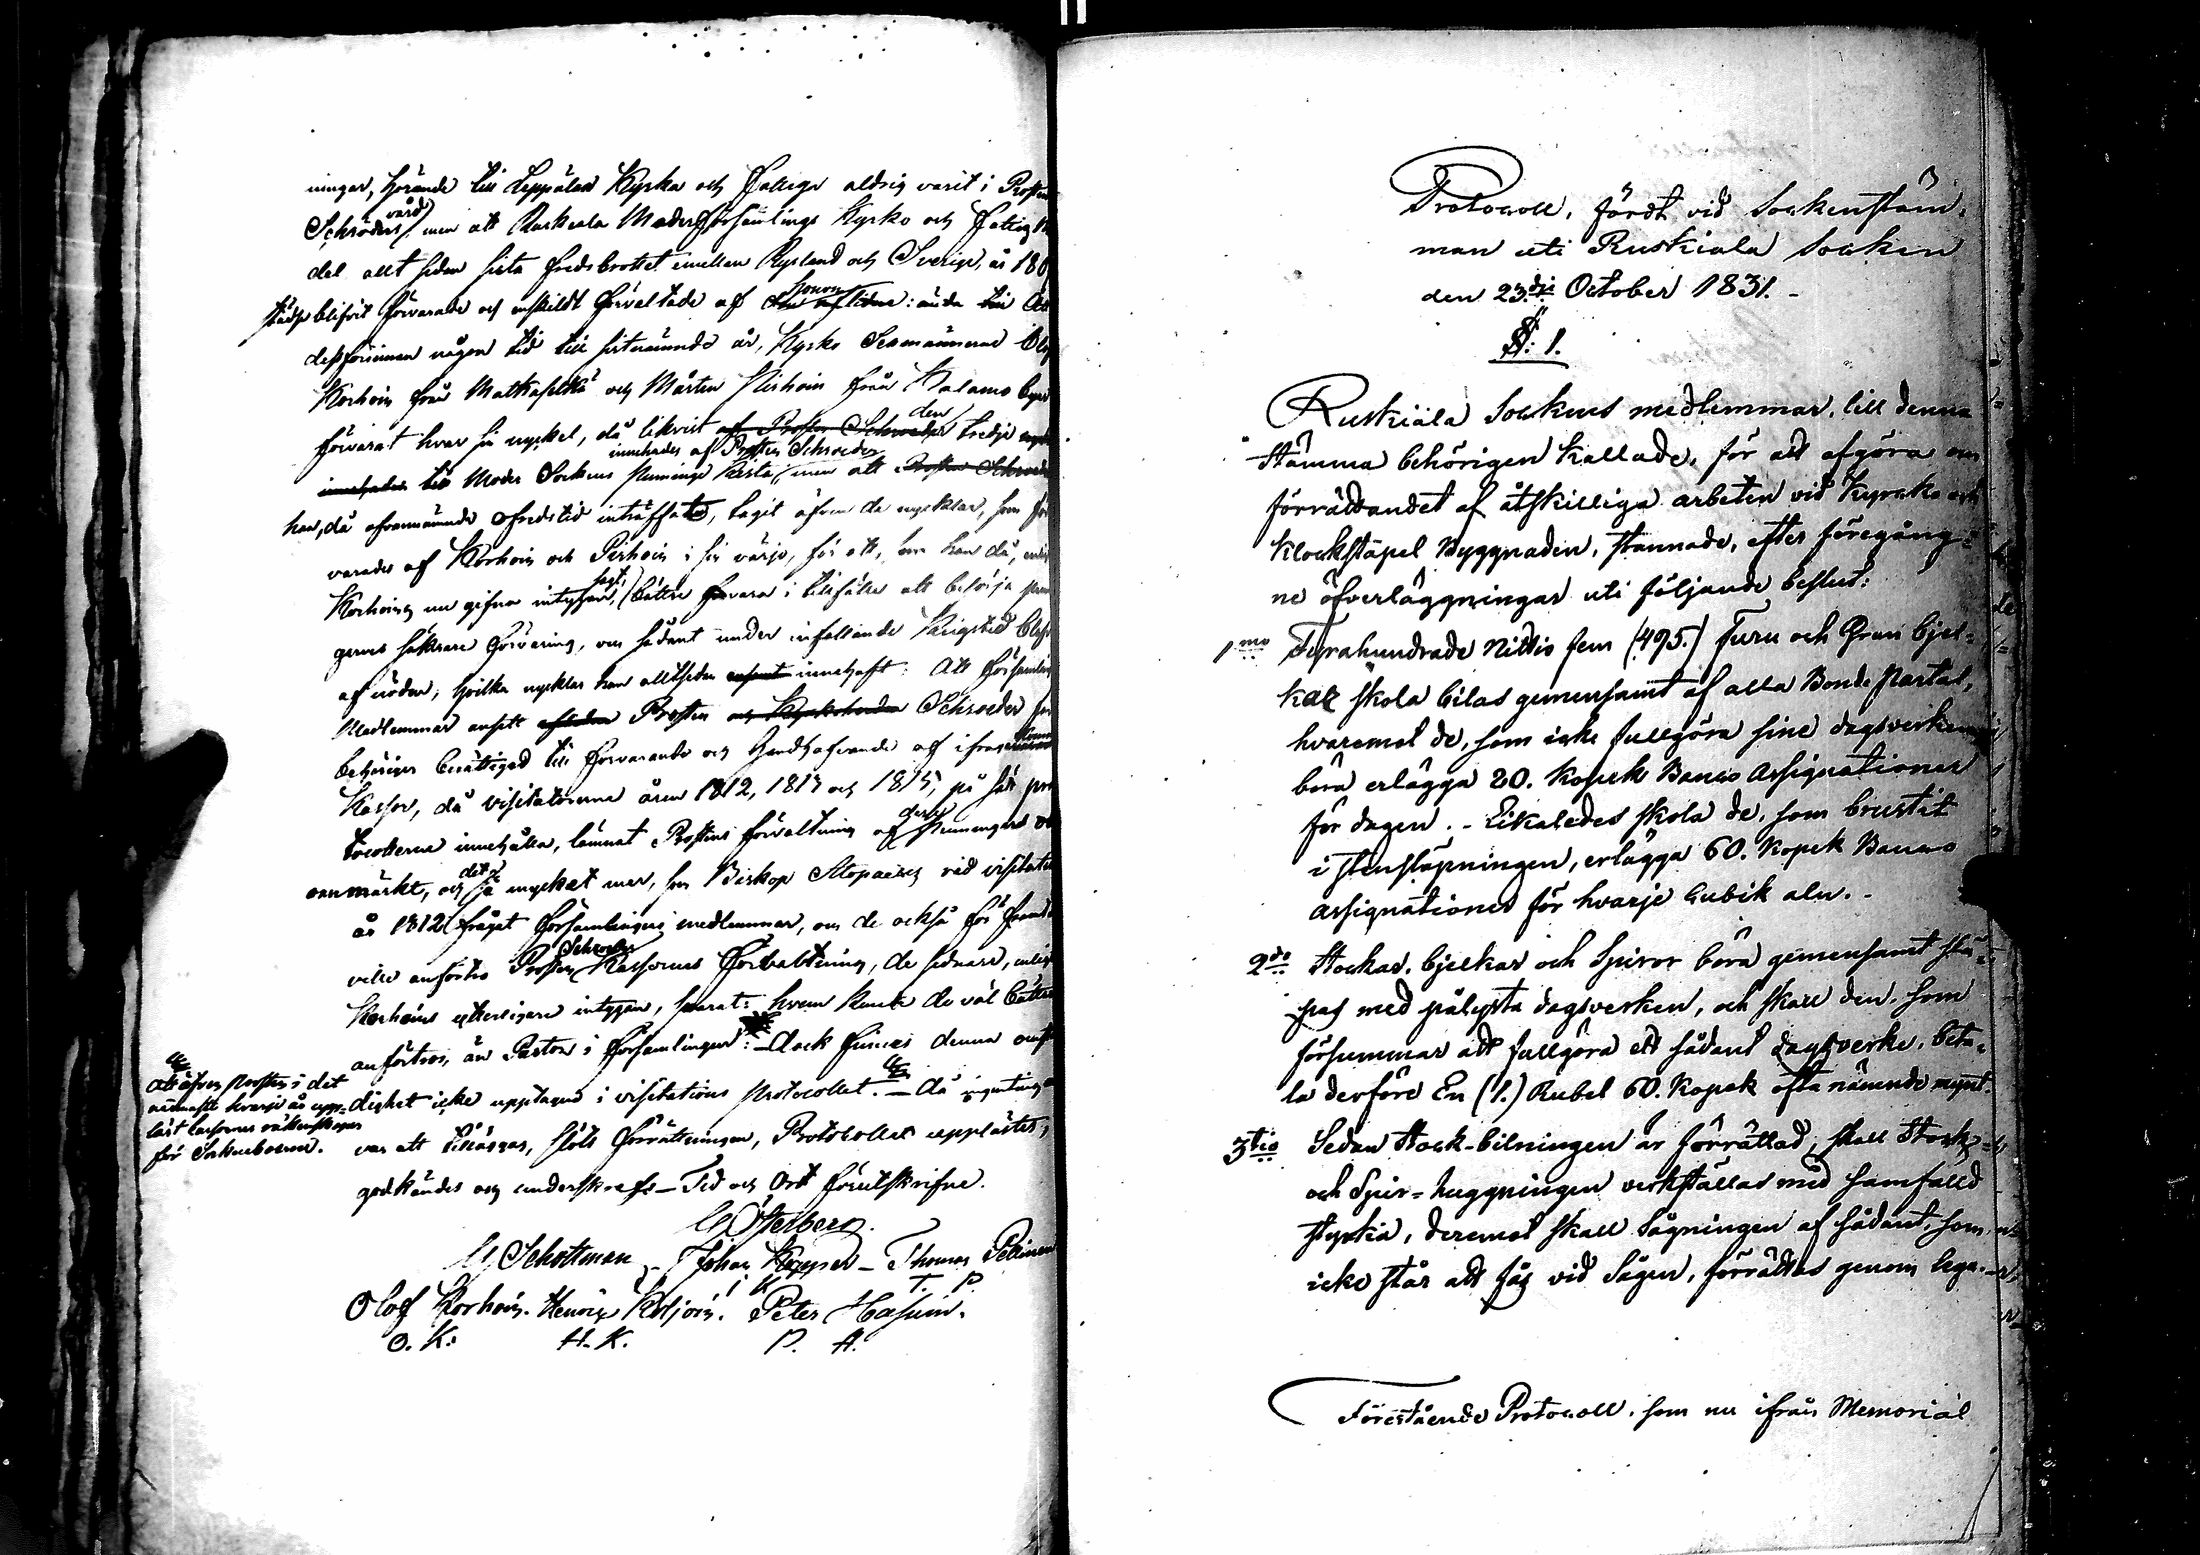 ningar, hörande till Leppälax Kyrka och Fattige aldrig varit i Prosten
Schröders vård, men att Ruskeala Moderförsamlings Kyrko och Fattig
del allt sedan sista fredsbrottet emellan Ryssland och Sverige, år 180
städse blifvit förvarade och enskildt förvaltade af honom: ända
dessförinnan någon tid till sistnämnde år, Kyrko Sexmännerne Olof
Korhoin från Matkaselkä och Mårten Hirhoin från Kalamo
förvarat hvar sin nyckel, då likvist den tredje
innehades af Prosten Schroeder till Moder Sockens Pennings Kista, men att
han, då ofvannämnde ofredstid inträffade, tagit äfven de nycklar, som för
varades af Korhoin och Pirhoin i sin värjo, för att, som han då,
Korhoins nu gifna intygan, sagt, bättre förvara i tillfälle att besörja pen
garnes säkrare förvaring, om sådant under infallande Krigstid blefve
af nöden, hvilka nycklar han alltsedan innehaft: Att Församlings
Medlemmar ansett Prosten Schroeder
behörigen berättigad till förvarande och handhafvande af ifrågavarande
Kassor, då visitationerne åren 1812, 1817 och 1815, på sätt pro
tocollerna innehålla, lämnat Prostens förvaltning af dessa Penningar o
anmärkt, och det så mycket mer, som Biskop Alopaeus vid visitation
år 1812 frågat Församlingens medlemmar, om de också för framtiden
ville anförtro Prosten Schroeder Kassornes Förvaltning, de sednare, enligt
Korhoins ytterligare intygan, svarat: hvem kunde de väl bättre
anförtros, än Pastor i Församlingen: – dock finnes denna omst
ändighet icke upptagen i visitations Protocollet. – Då ingenting
var att tilläggas, slöts Förrättningen, Protokollet upplästes,
godkändes och underskrefs – Tid och Ort förutskrifne.
Att äfven Prosten i det
närmaste hvarje år upp-
läst Cassornes räkenskaper
för Sockneboerne.
G Österberg.
G Schottman – Johan Kopponen – Thomas Pellinen
K T. P.
Olof Korhoin. Henric Kiljoin. Peter Hasuin.
O. K: H. K. P. H.
Protocoll, fördt vid Sockenstäm-
man uti Ruskiala Socken
den 23:dje October 1831. –
§: 1.
Ruskiäla Sockens medlemmar, till denna
stämma behörigen kallade, för att afgöra om
förrättandet af åtskilliga arbeten vid Kyrko och
Klockstapel Byggnaden, stannade, efter föregång-
ne öfverläggningar uti följande beslut:
1mo Fyrahundrade Nittio fem (495.) Furu och Gran bjel-
kar skola bilas gemensamt af alla Bonde Partal,
hvaremot de, som icke fullgöra sine dagsverken
böra erlägga 80. Kopek Banco Assignationer
för dagen. – Likaledes skola de, som brustit
i Stensläpningen, erlägga 60. Kopek Banco
Assignationer för hvarje Cubik aln. –
2do Stockar, bjelkar och Spiror böra gemensamt släp-
pas med pålysta dagsverken, och skall den, som
försummar att fullgöra ett sådant dagsverke, beta-
la derföre En (1.) Rubel 60. Kopek ofta nämnde mynt.
3tio Sedan Stock-bilningen är förrättad, skall Stock-
och Spir-huggningen verkställas med samfälld
styrka, deremot skall Sågningen af sådant, som
icke står att fås vid Sågen, förrättas genom lega. –
Förestående Protocoll, som nu ifrån Memorial